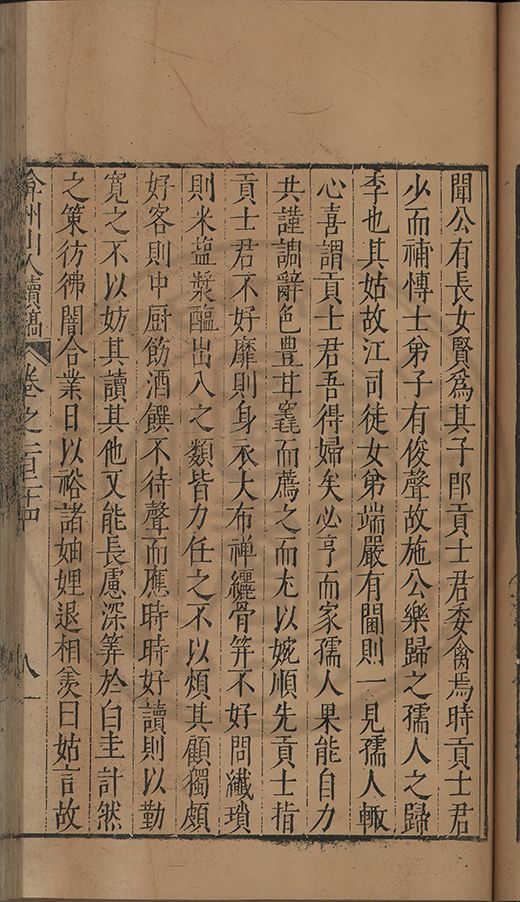 聞公有長女賢爲其子郎貢士君委禽焉時貢士君
少而補慱士弟子有俊聲故施公樂歸之孺人之歸
季也其姑故江司徒女弟端嚴有閫則一見孺人輙
心喜謂貢士君吾得婦矣必亨而家孺人果能自力
共謹調辭色豐甘毳而薦之而尤以婉順先貢士指
貢士君不好靡則身衣大布禪纚骨筓不好問纖瑣
則米塩漿醞出入之類皆力任之不以煩其顧獨頗
好客則中厨飭酒饌不待聲而應時時好讀則以勤
寛之不以妨其讀其他又能長慮深筭於白圭計然
之策彷彿闇合業日以裕諸妯娌退相羡曰姑言故
弇州山人續稿 卷之一百二十四 八